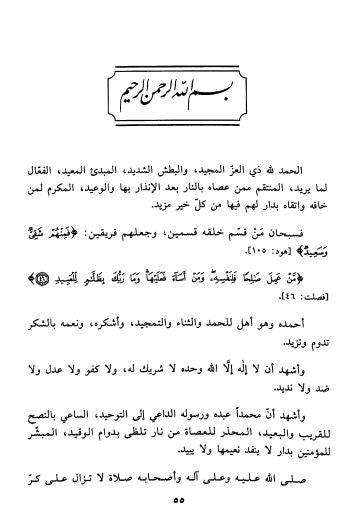 بسم الله الرحمن الرحيم
الحمد لله ذي العزّ المجيد، والبطش الشديد، المبدئ المعيد، الفعّال
لما يريد، المنتقم ممن عصاه بالنار بعد الإنذار بها والوعيد، المكرم لمن
خافه واتقاه بدار لهم فيها من كلّ خير مزيد.
فسبحان مَنْ قسّم خلقه قسمين، وجعلهم فريقين: ﴿فَمِنْهُمْ شَقِيٌّ
وَسَعِيدٌ﴾ [هود: ١٠٥].
﴿مَّنْ عَمِلَ صَالِحًا فَلِنَفْسِهِۦ وَمَنْ أَسَآءَ فَعَلَيْهَا وَمَا رَبُّكَ بِظَلَّامٍ لِّلْعَبِيدِ ٤٦﴾
[فصلت: ٤٦].
أحمده وهو أهل للحمد والثناء والتمجيد، وأشكره، ونعمه بالشكر
تدوم وتزيد.
وأشهد أن لا إله إلَّا الله وحده لا شريك له، ولا كفو ولا عدل ولا
ضد ولا نديد.
وأشهد أنّ محمداً عبده ورسوله الداعي إلى التوحيد، الساعي بالنصح
للقريب والبعيد، المحذر للعصاة من نار تلظى بدوام الوقيد، المبشّر
للمؤمنين بدار لا ينفد نعيمها ولا يبيد.
صلى الله عليه وعلى آله وأصحابه صلاة لا تزال على كرّ
٥٥